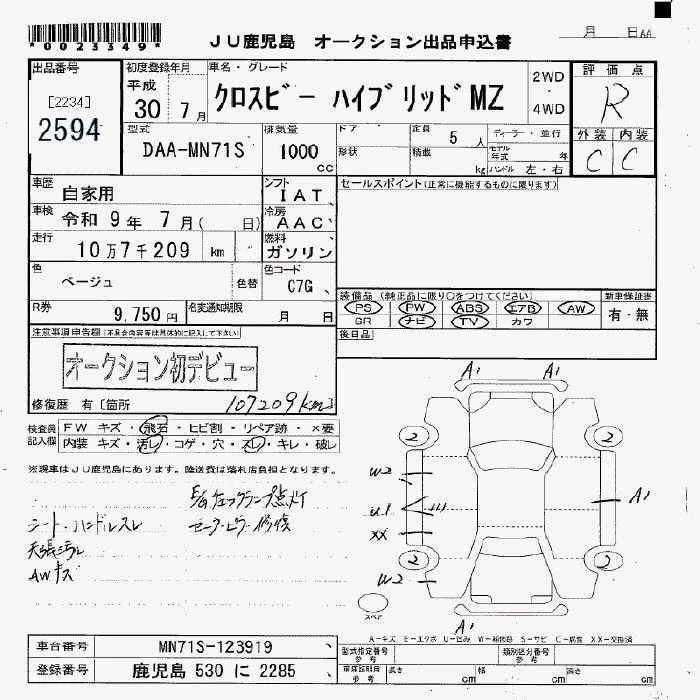 *0023349*
JU鹿児島 オークション出品申込書
月 日AA
出品番号
[2234]
2594
初度登録年月
平成
30 7月
車名・グレード
クロスビー ハイブリッドMZ
2WD
・
4WD
評価点
R
型式
DAA-MN71S
排気量
1000
cc
ドア
形状
定員 5人
積載 kg
ディーラー・並行
モデル年式 年
ハンドル 左・右
外装 内装
C C
車歴
自家用
シフト
IAT
セールスポイント(正常に機能するものに限ります)
車検
令和 9年 7月( 日)
冷房
AAC
走行
10万7千209 km
燃料
ガソリン
色
ベージュ
色替
色コード
C7G
R券
9,750円
名変通知期限
月 日
装備品 (純正品に限り○をつけてください)
PS PW ABS エアB AW
SR ナビ TV カワ
新車保証書
有・無
後日品
注意事項申告欄(不具合内容等は具体的に記入して下さい)
オークション初デビュー
修復歴 有〔箇所
107209km〕
検査員
記入欄
FW キズ・飛石・ヒビ割・リペア跡・×要
内装 キズ・汚レ・コゲ・穴・スレ・キレ・破レ
※現車はJU鹿児島にあります。陸送費は落札店負担となります。
シート・ハンドルスレ
AWキズ
A1 A1
2 2
W2
U1
XX
A1
2 2
W2
スペア
A1
A-キズ E-エクボ U-凹み W-補修跡 S-サビ C-腐食 XX-交換済
車台番号
MN71S-123919
登録番号
鹿児島 530 に 2285
型式指定番号
参考
類別区分番号
参考
車庫証明用
参考
長さ cm
幅 cm
高さ cm